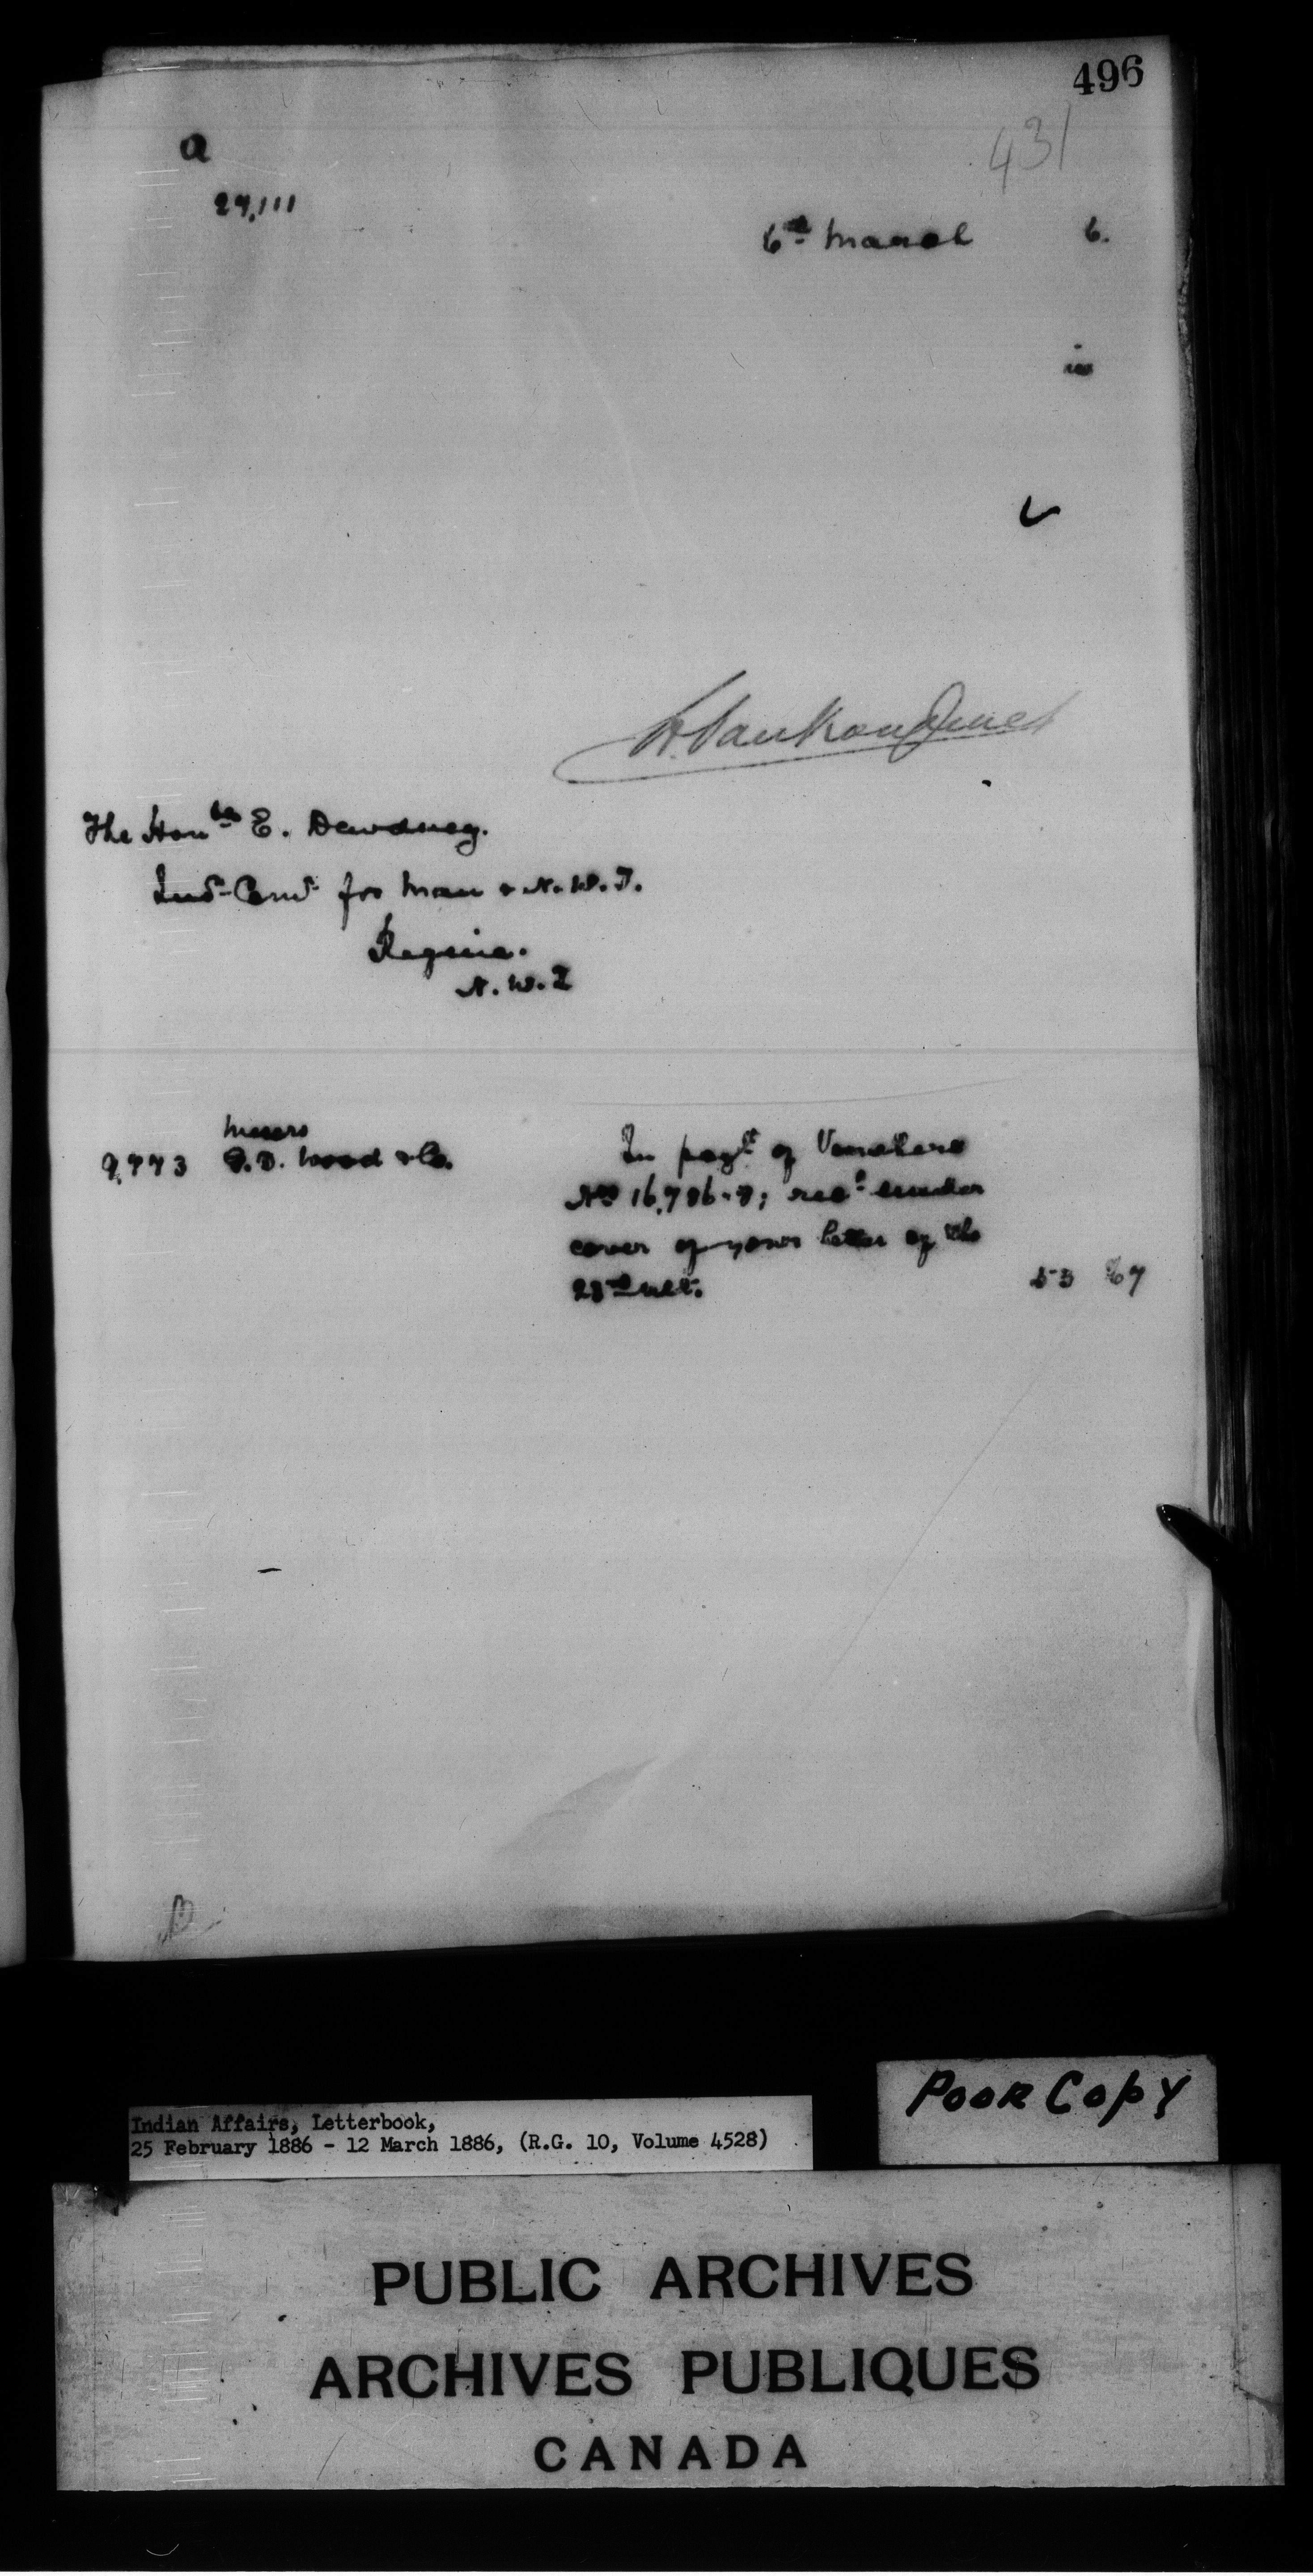 496
431
a
27,111
6th March 6.
in
L. Vankoughnet
The Honble E. Dewdney.
Ind. Comr for Man & N.W.T.
Regina.
N.W.T
Messrs
9,773 D. Wood & Co. In payt of Vouchers
Nos 16,786-7; recd under
cover of your letter of the
23rd ult. 53 67
Indian Affairs, Letterbook,
25 February 1886 - 12 March 1886, (R.G. 10, Volume 4528)
POOR COPY
PUBLIC ARCHIVES
ARCHIVES PUBLIQUES
CANADA